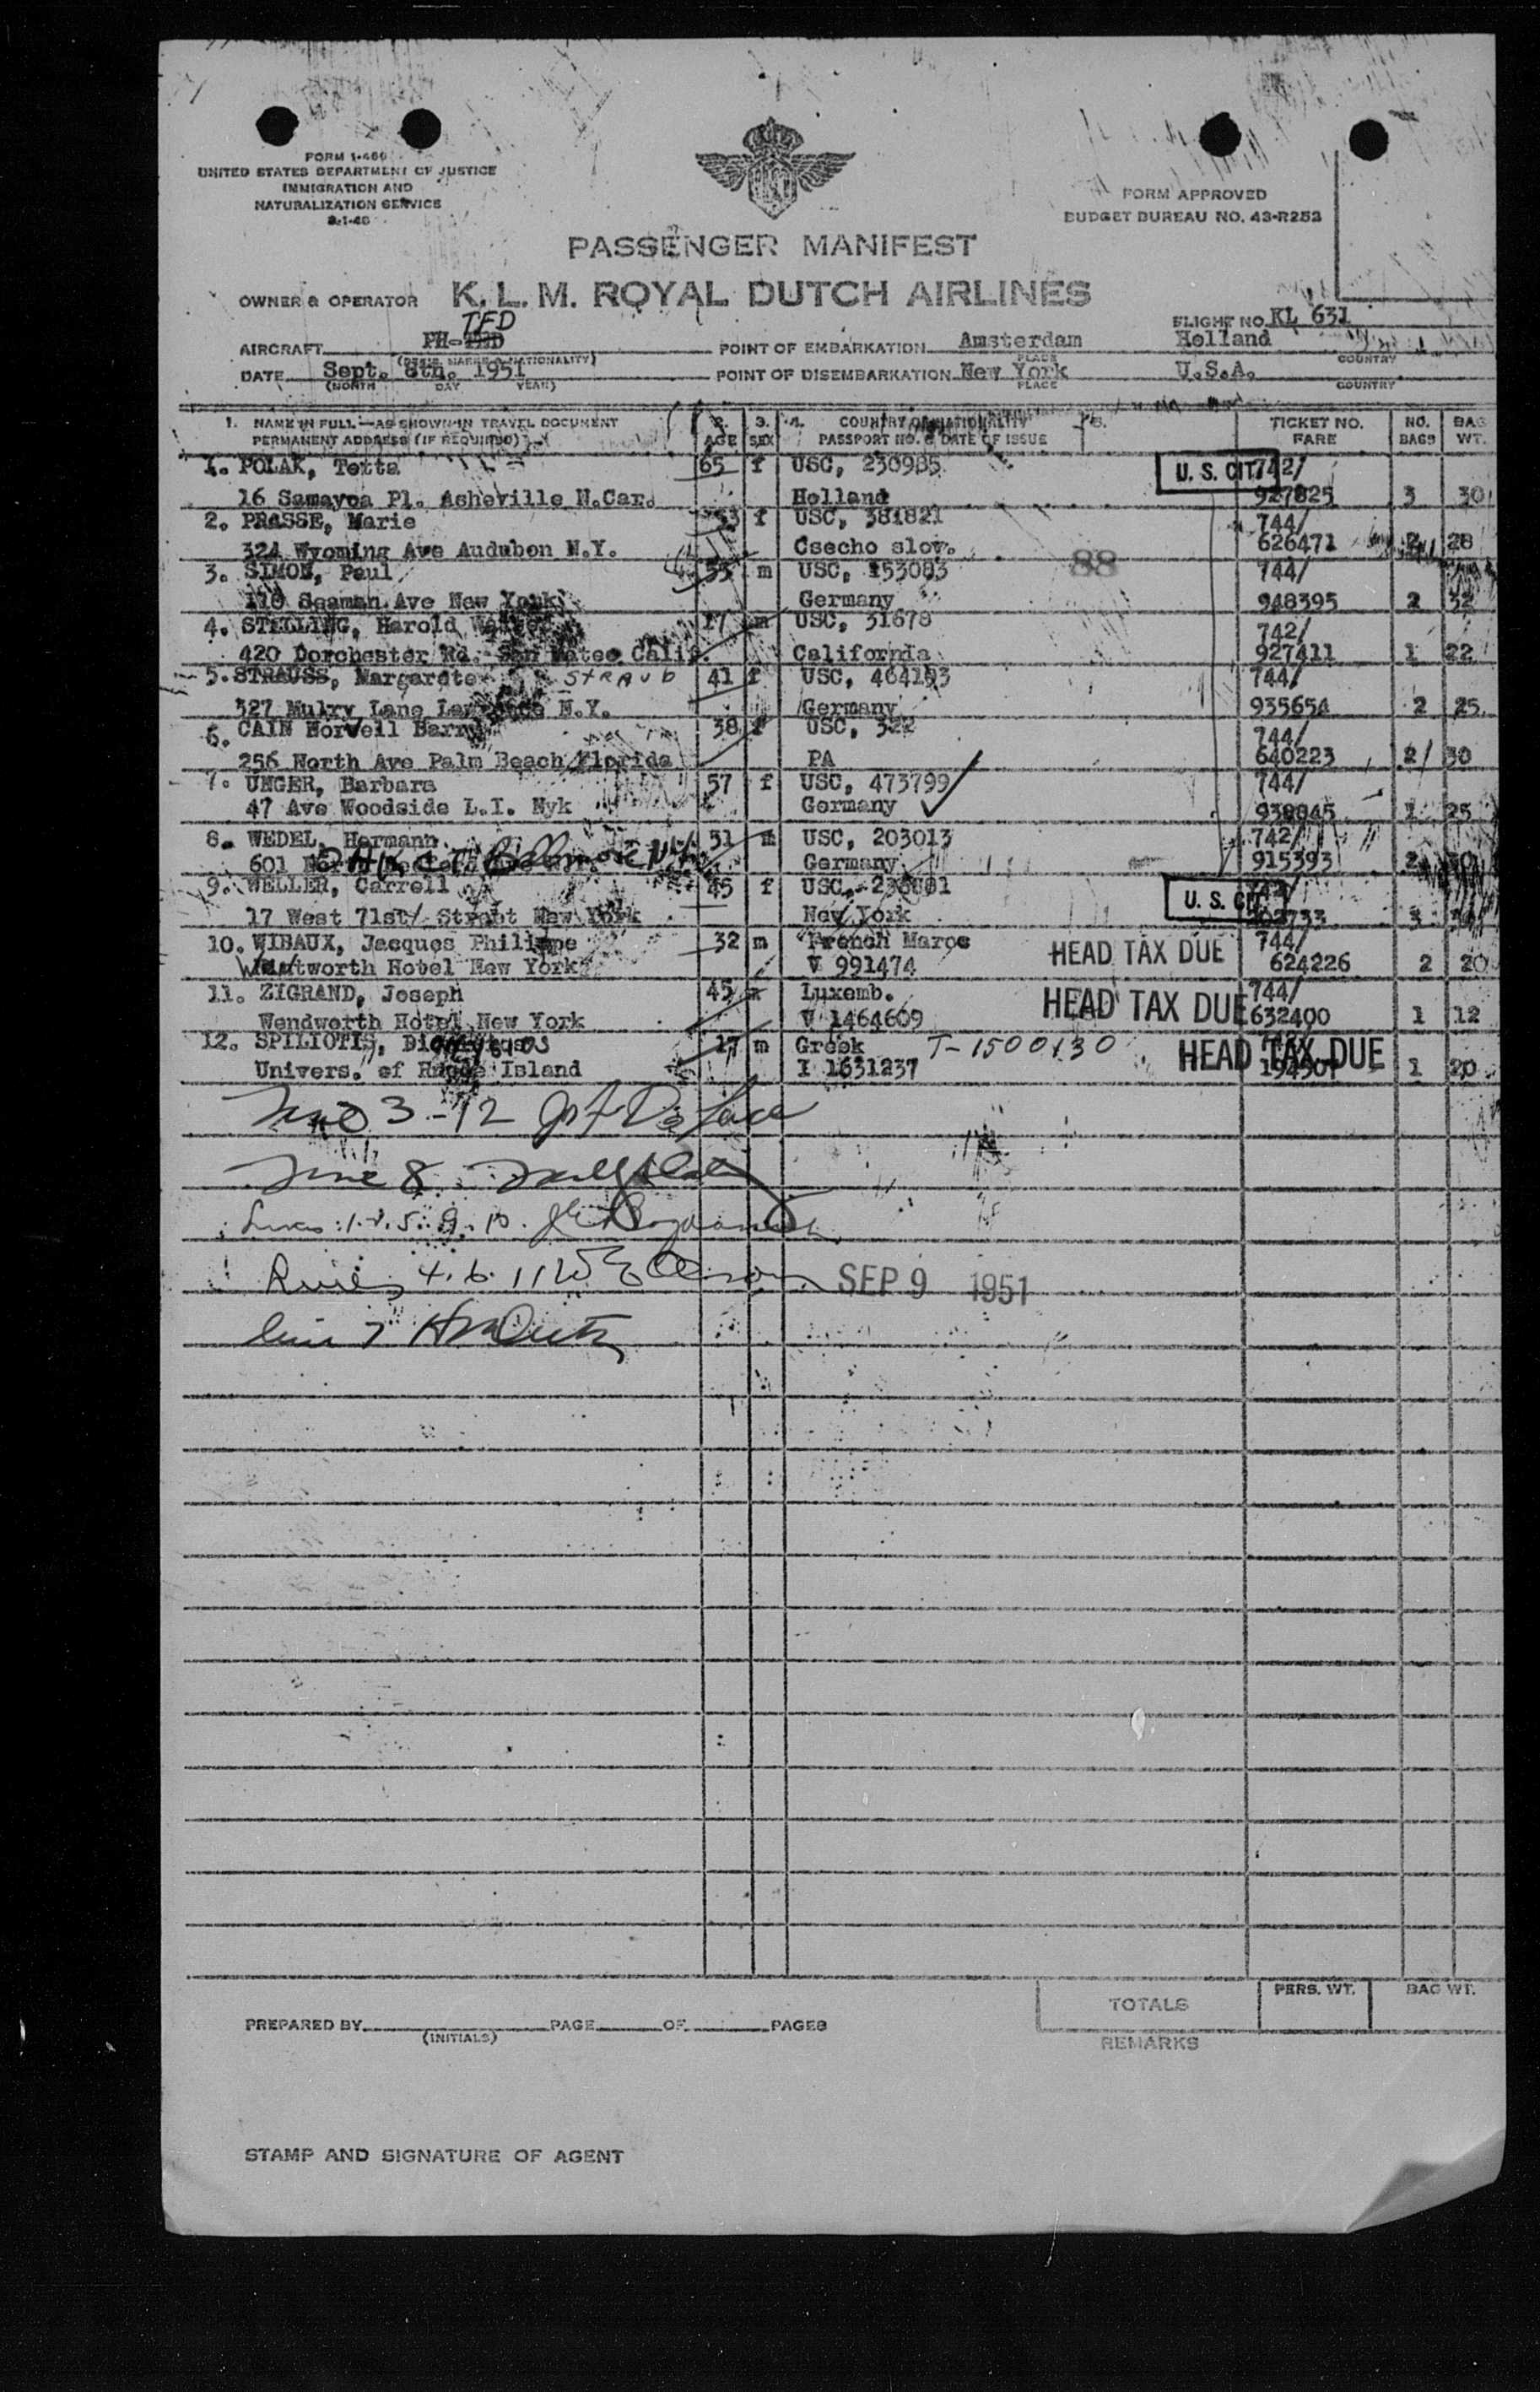 FORM I-466
UNITED STATES DEPARTMENT OF JUSTICE
IMMIGRATION AND
NATURALIZATION SERVICE
FORM APPROVED
BUDGET BUREAU NO. 43-R253
PASSENGER MANIFEST
OWNER & OPERATOR K. L. M. ROYAL DUTCH AIRLINES
TFD
FLIGHT NO. KL 631
AIRCRAFT PH- POINT OF EMBARKATION Amsterdam Holland
(DESIG. MARKS & NATIONALITY) PLACE COUNTRY
DATE Sept. 8th. 1951 POINT OF DISEMBARKATION New York U.S.A.
(MONTH DAY YEAR) PLACE COUNTRY
1. NAME IN FULL—AS SHOWN IN TRAVEL DOCUMENT 2. 3. 4. COUNTRY OF NATIONALITY 5. TICKET NO. NO. BAG
PERMANENT ADDRESS (IF REQUIRED) AGE SEX PASSPORT NO. & DATE OF ISSUE FARE BAGS WT.
1. POLAK, Tetta 65 f USC, 230985 U. S. CIT. 742/
16 Samayoa Pl. Asheville N.Car. Holland 927825 3 30
2. PRASSE, Marie 53 f USC, 381821 744/
324 Wyoming Ave Audubon N.Y. Csecho slov. 626471 2 28
3. SIMON, Paul 55 m USC, 153083 88 744/
110 Seaman Ave New York Germany 948395 2 32
4. STELLING, Harold 17 m USC, 31678 742/
420 Dorchester Rd. San Mateo Calif. California 927411 1 22
5. STRAUSS, Margarete STRAUB 41 f USC, 464193 744/
327 Mulry Lane N.Y. Germany 935654 2 25
6. CAIN Norveil Barry 38 f USC, 322 744/
256 North Ave Palm Beach Florida PA 640223 2/ 30
7. UNGER, Barbara 57 f USC, 473799 744/
47 Ave Woodside L.I. Nyk Germany 1 25
8. WEDEL, Hermann 51 m USC, 203013 742/
601 Bellmore N.Y. Germany 915393 2
9. WELLER, Carrell 45 f USC, U. S. CIT.
17 West 71st/ Street New York New York 3
10. WIBAUX, Jacques Philippe 32 m French Maroc HEAD TAX DUE 744/
Wentworth Hotel New York V 991474 624226 2 20
11. ZIGRAND, Joseph 45 m Luxemb. HEAD TAX DUE 744/
Wendworth Hotel New York V 1464609 632400 1 12
12. SPILIOTIS, 17 m Greek T-1500130 HEAD TAX DUE
Univers. of Rhode Island I 1631237 1 20
3-12
8
4. 6. 11
SEP 9 1951
7
TOTALS PERS. WT. BAG WT.
PREPARED BY PAGE OF PAGES
(INITIALS)
REMARKS
STAMP AND SIGNATURE OF AGENT